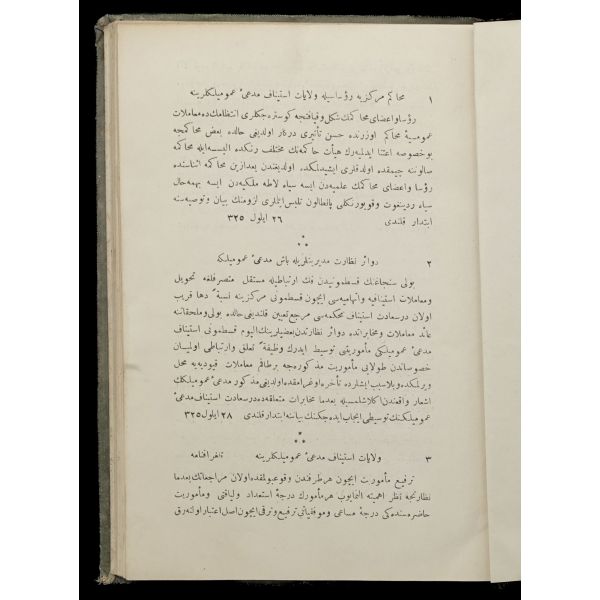 ١ محاكم مركزيه رؤساسيله ولايات استيناف مدعئ عموميلكلرينه
رؤسا واعضای محاكمك شكل وقيافتجه كوستره جكلری انتظامك ده معاملات
عموميهٔ محاكم اوزرنده حسن تأثيری دركار اولديغی حالده بعض محاكمجه
بو خصوصه اعتنا ايدلميه رك هيأت حاكمه نك مختلف رنكده البسه ايله محاكمه
صالوننه چيقمقده اولدقلری ايشيدلمكده اولديغندن بعدازين محاكمه اثناسنده
رؤسا واعضای محاكمك علميه دن ايسه سياه لاطه ملكيه دن ايسه بهمه حال
سياه ردينغوت وقويو رنكلی پانطالون تلبس ايتملری لزومنك بيان وتوصيه سنه
ابتدار قلندی ٢٦ ايلول ٣٢٥
٢ دوائر نظارت مديريتلريله باش مدعئ عموميلكه
بولی سنجاغنك قسطمونيدن فك ارتباطيله مستقل متصرفلغه تحويل
ومعاملات استينافيه واتهاميه سی ايچون قسطمونی مركزينه نسبةً دها قريب
اولان درسعادت استيناف محكمه سی مرجع تعيين قلنديغی حالده بولی وملحقاتنه
عائد معاملات ومخابراتده دوائر نظارتدن بعضيلرينك اليوم قسطمونی استيناف
مدعئ عموميلكی مأموريتنی توسيط ايدرك وظيفةً تعلق وارتباطی اولميان
خصوصاتدن طولايی مأموريت مذكوره جه برطاقم معاملات قيوديه يه محل
ويرلمكده وبلاسبب ايشلرده تأخره اوغرامقده اولديغی مذكور مدعئ عموميلكك
اشعار واقعندن اكلاشلمسيله بعدما مخابرات متعلقه ده درسعادت استيناف مدعئ
عموميلكنك توسيطی ايجاب ايده جكنك بياننه ابتدار قلندی ٢٨ ايلول ٣٢٥
٣ ولايات استيناف مدعئ عموميلكلرينه تلغرافنامه
ترفيع مأموريت ايچون هر طرفدن وقوعبولمقده اولان مراجعاتك بعدما
نظارتجه نظر اهميته النمايوب هر مأمورك درجهٔ استعداد ولياقتی ومأموريت
حاضره سنده كی درجهٔ مساعی وموفقياتی ترفيع وترقی ايچون اصل اعتبار اولنه رق